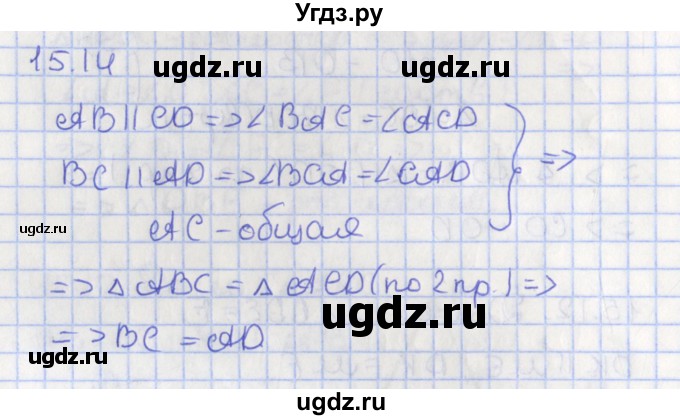 Угдз.ру
15.14
ugdz.ru
ugdz.ru
AB || CD => ∠BAC = ∠ACD
BC || AD => ∠BCA = ∠CAD } =>
ugdz.ru
AC - общая
=> △ABC = △ACD (по 2 пр.) =>
ugdz.ru
=> BC = AD
ugdz.ru
ugdz.ru
Угдз.ру